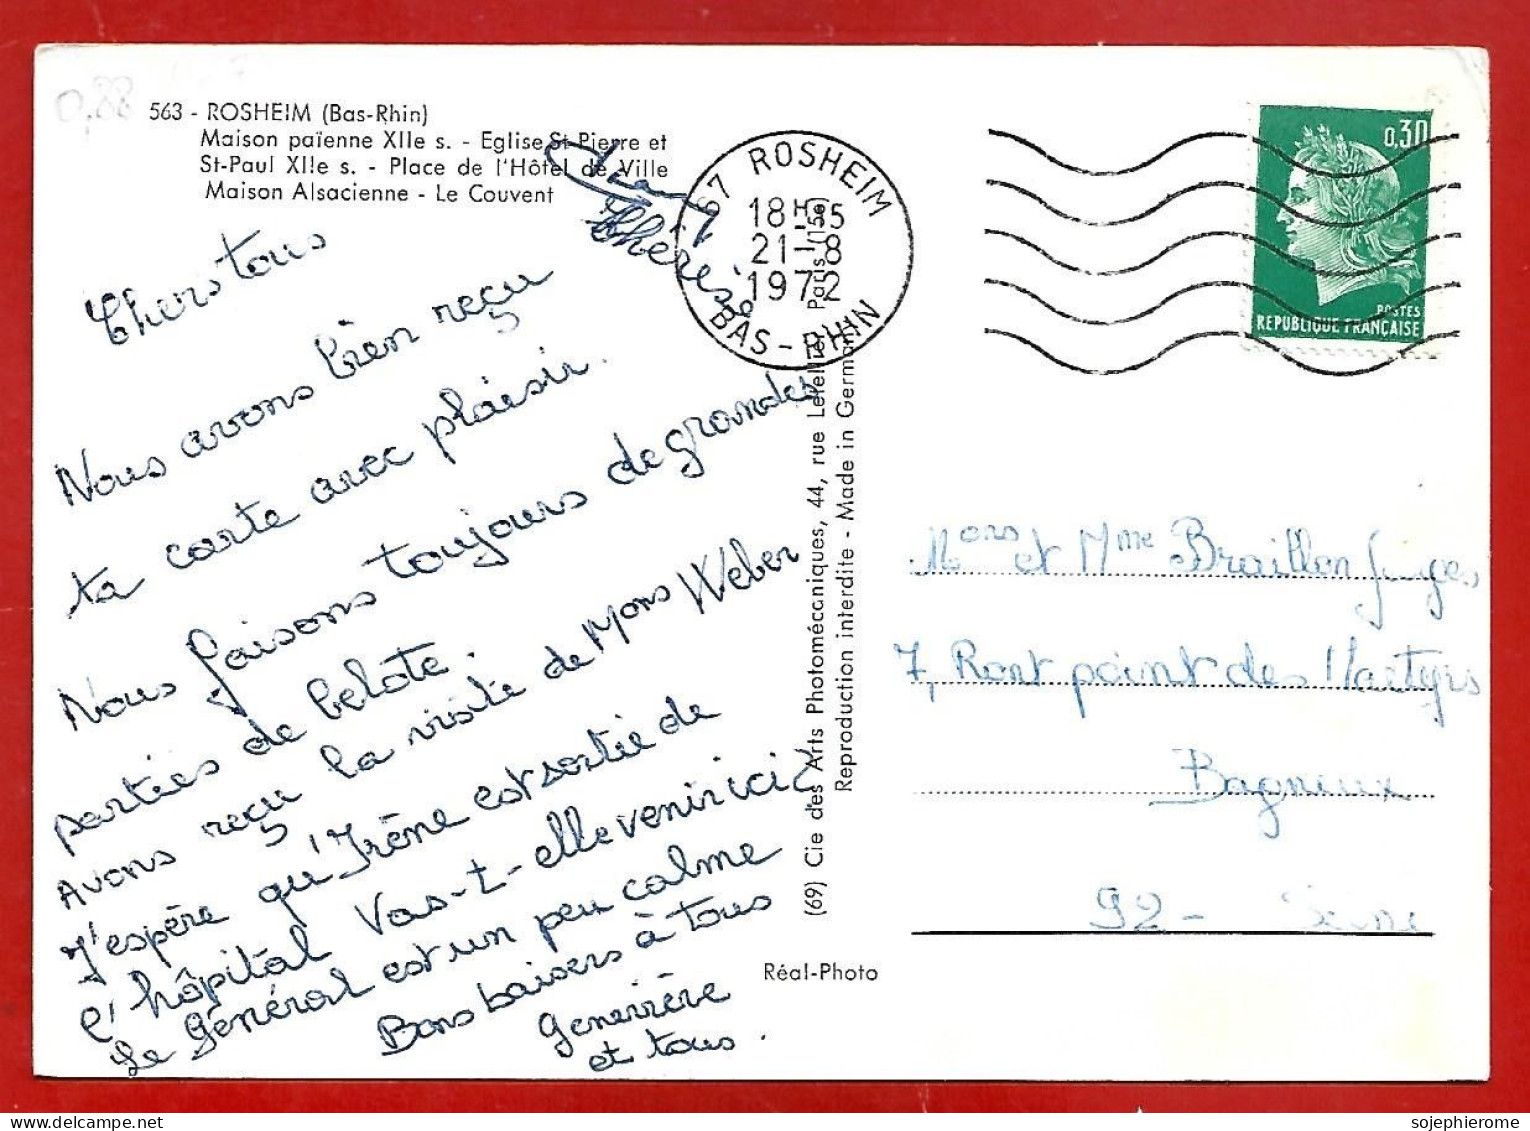 0,88
563 - ROSHEIM (Bas-Rhin)
Maison païenne XIIe s. - Eglise St-Pierre et
St-Paul XIIe s. - Place de l'Hôtel de Ville
Maison Alsacienne - Le Couvent
Thérèse
67 ROSHEIM
18H15
21-8
1972
BAS-RHIN
0,30
POSTES
REPUBLIQUE FRANÇAISE
Chers tous
Nous avons bien reçu
ta carte avec plaisir.
Nous faisons toujours de grandes
parties de belote.
Avons reçu la visite de Mons Weber
J'espère qu'Irène est sortie de
l'hôpital Vas-t-elle venir ici?
Le Général est un peu calme
Bons baisers à tous
Geneviève
et tous.
(69) Cie des Arts Photomécaniques, 44, rue Letellier, Paris (15e)
Reproduction interdite - Made in Germany
Réal-Photo
Mons et Mme Braillon Georges
7, Ront point des Martyrs
Bagneux
92 - Seine
sojephierome